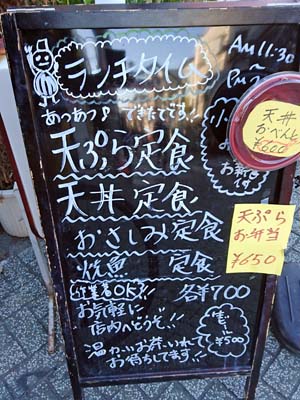 ランチタイム
AM11:30
~
PM2:
あつあつ! できたてです!!
天ぷら定食
天丼定食
おさしみ定食
焼魚 定食
作業着OKす!!
各¥700
お気軽に
店内へどうぞ!!
温かいお茶いれて
お待ちしてます!!
¥500
天丼
おべんとう
¥600
天ぷら
お弁当
¥650